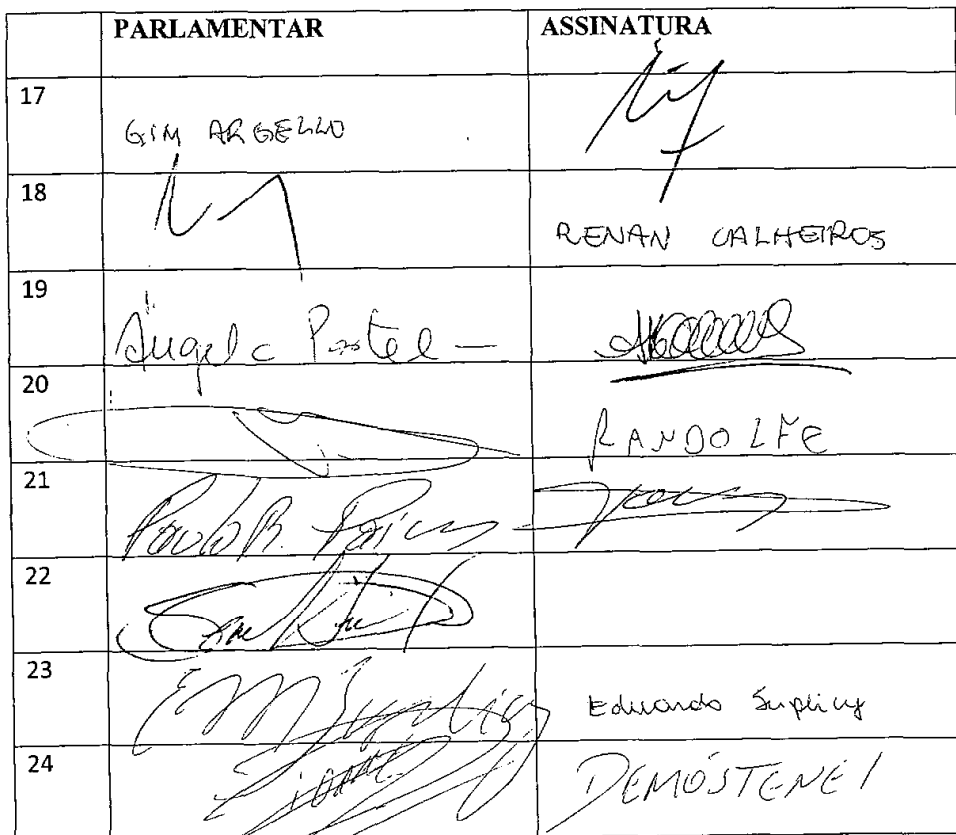 PARLAMENTAR ASSINATURA
17 GIM ARGELLO
18 RENAN CALHEIROS
19 Ângela Portela
20 RANDOLFE
21 Paulo R. Paim
22
23 Eduardo Suplicy
24 DEMÓSTENES